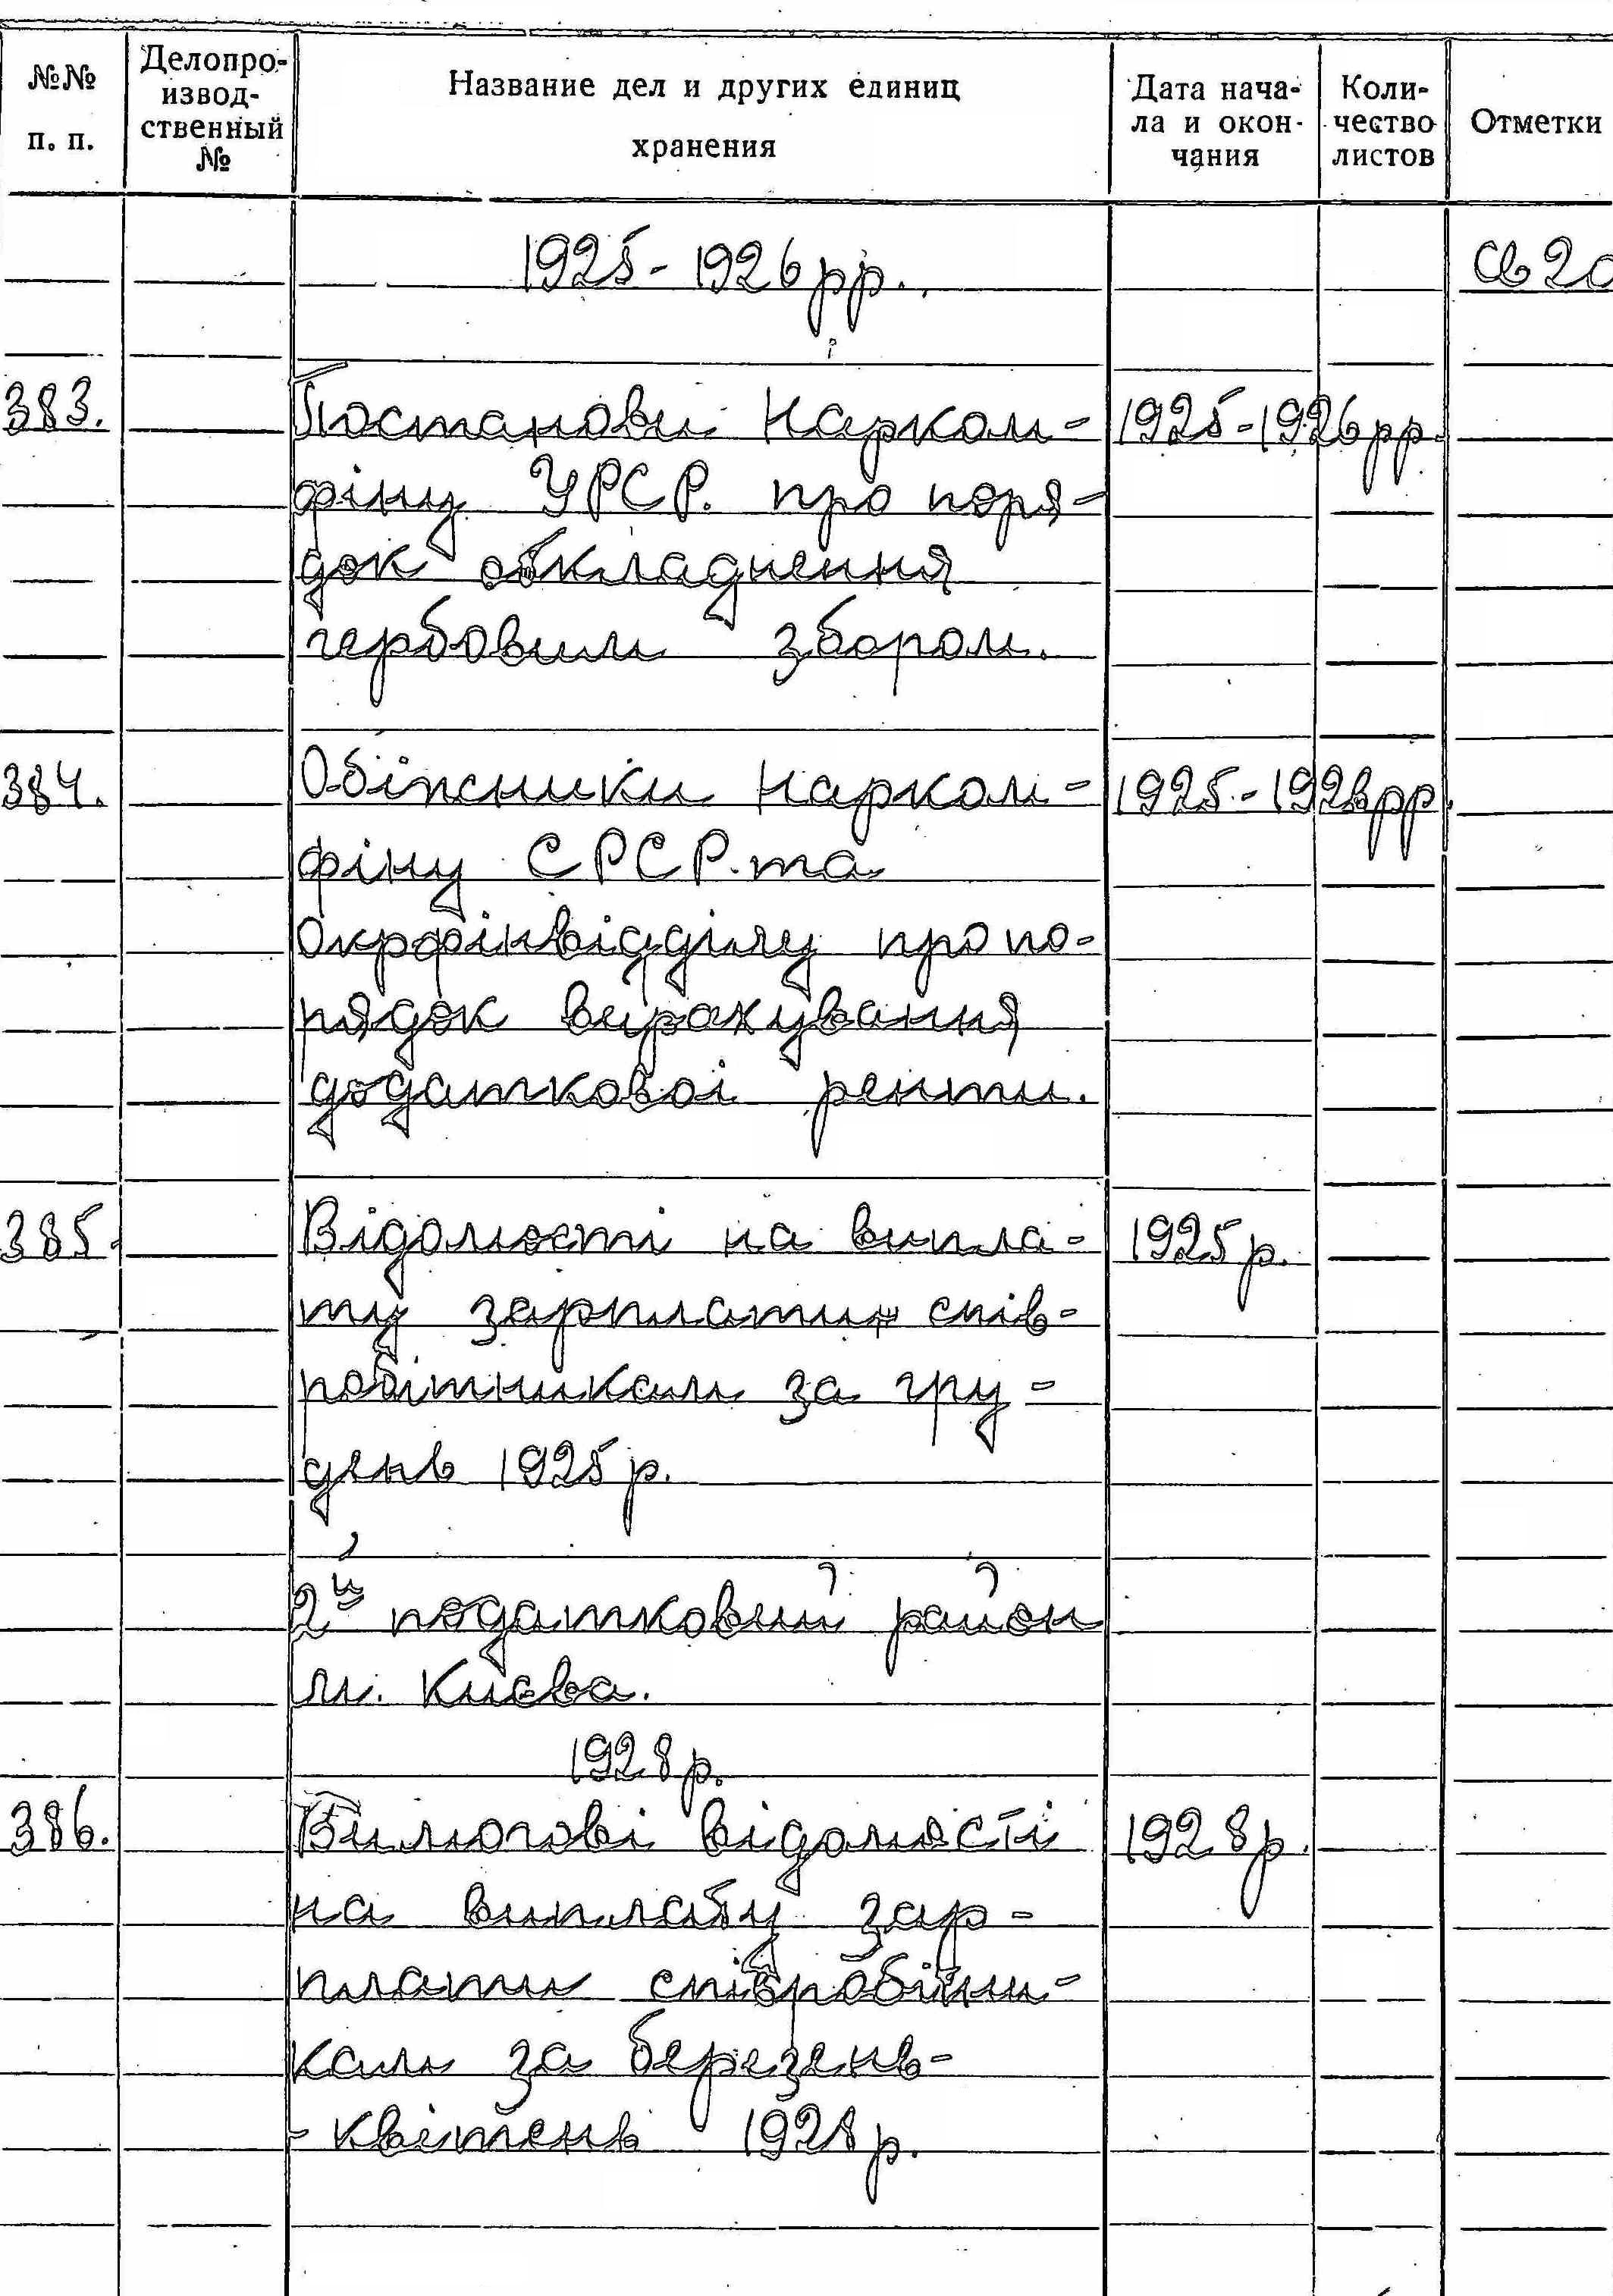 №№ п. п.
Делопро-
извод-
ственный
№
Название дел и других единиц
хранения
Дата нача-
ла и окон-
чания
Коли-
чество
листов
Отметки
1925-1926 рр.
383. Постанови Нарком- 1925-1926 рр.
фіну УРСР. про поря-
док обкладнення
гербовим збором.
384. Обіжники Нарком- 1925-1926 рр.
фіну СРСР. та
Окрфінвідділу про по-
рядок вирахування
додаткової ренти.
385. Відомості на випла- 1925 р.
ту зарплати спів-
робітникам за гру-
день 1925 р.
2й податковий район
м. Києва.
1928 р.
386. Вимогові відомості 1928 р.
на виплату зар-
плати співробітни-
кам за березень-
- квітень 1928 р.